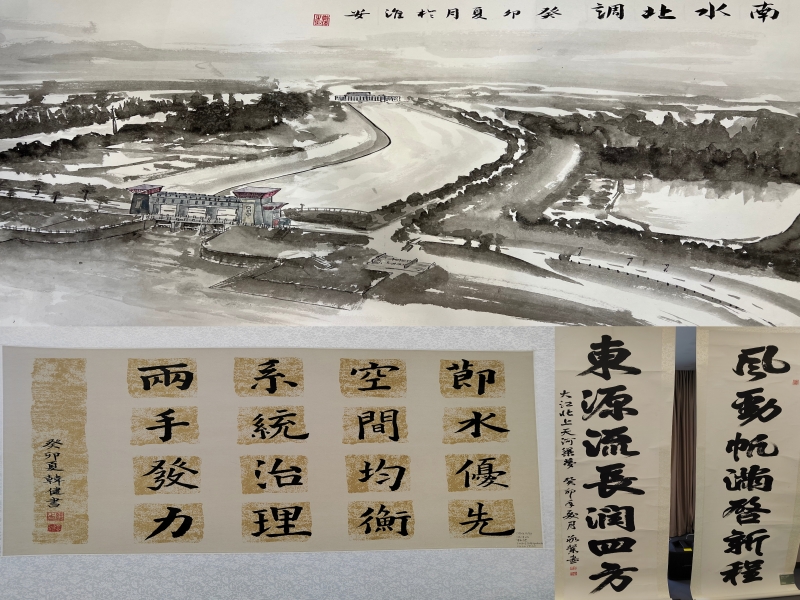 南水北調 癸卯夏月於淮安
節水優先
空間均衡
系統治理
兩手發力
癸卯夏韓健書
風動帆滿啓新程
東源流長润四方
大江北上天河築夢